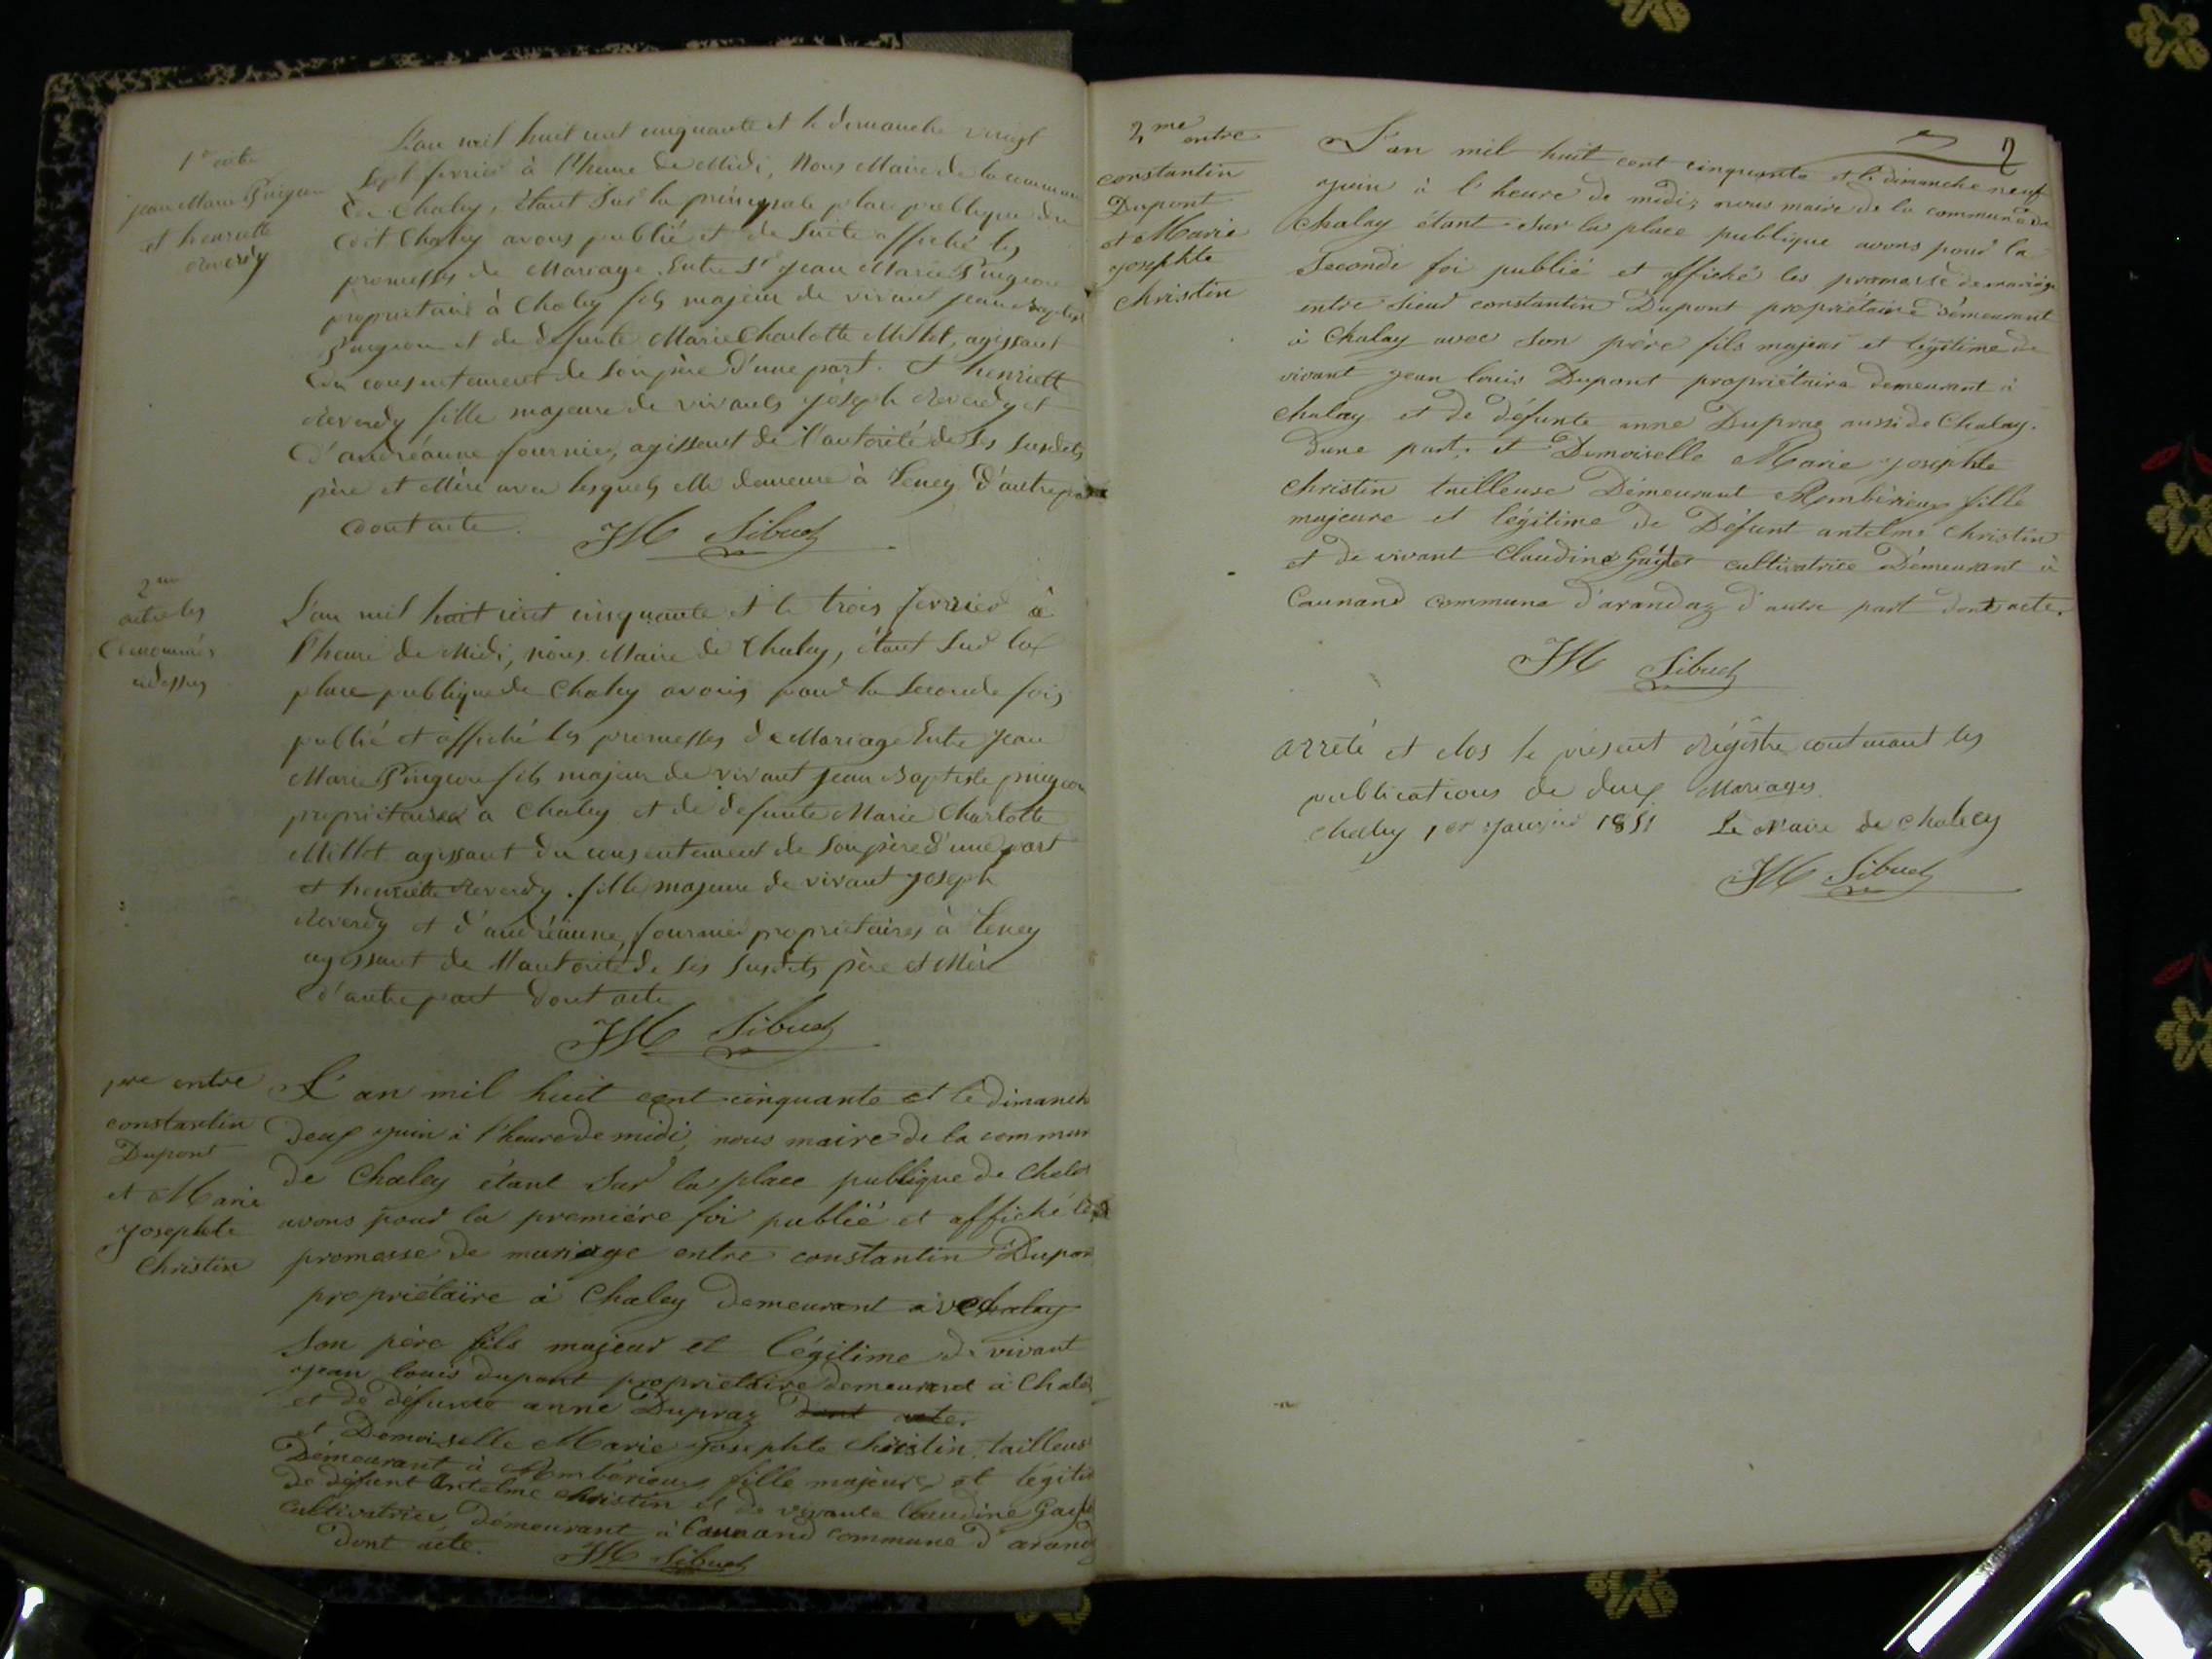 1er acte
jean Marie Pingeon
et henriette
Reverdy
L'an mil huit cent cinquante et le dimanche vingt
sept fevrier à l'heure de Midi, Nous Maire de la commune
de Chaley, étant sur la principale place publique du
dit Chaley avons publié et de suite affiché les
promesses de Mariage Entre Sr Jean Marie Pingeon
propriétaire à Chaley fils majeur de vivant jean Baptiste
Pingeon et de défunte Marie Charlotte Millet, agissant
du consentement de son père d'une part. Et henriett
Reverdy fille majeure de vivants joseph Reverdy et
d'andréanne fournier, agissant de l'autorité de ses susdits
père et Mère avec lesquels elle demeure à Teney d'autre part
dont acte.
JM Sibuet
2me
acte les
dénommés
cidessus
L'an mil huit cent cinquante et le trois fevrier à
l'heure de Midi, nous Maire de Chaley, étant sur la
place publique de Chaley avons pour la seconde fois
publié et affiché les promesses de Mariage Entre Jean
Marie Pingeon fils majeur de vivant Jean Baptiste pingeon
propriétaires a Chaley et de defunte Marie Charlotte
Millet agissant du consentement de son père d'une part
et henriette Reverdy. fille majeure de vivant joseph
Reverdy et d'andréanne fournier propriétaires à Teney
agissant de l'autorité de ses susdits père et Mère
d'autre part dont acte
JM Sibuet
1re entre
constantin
Dupont
et Marie
josephte
Christin
L'an mil huit cent cinquante et le dimanch
deux juin à l'heure de midi, nous maire de la commun
de Chaley étant sur la place publique de Chale
avons pour la première foi publié et affiché les
promesse de mariage entre constantin Dupon
propriétaire à Chaley demeurant avec
son père fils majeur et légitime de vivant
jean louis dupont propriétaire demeurant à Chale
et de défunte anne Dupraz dont acte.
et Demoiselle Marie josephte christin tailleus
Demeurant à Ambérieux fille majeure et légiti
de défunt Antelme christin et de vivante Claudine Gay
cultivatrice, Demeurant à Caunand commune d'arand
dont acte.
JM Sibuet
2
2me entre
constantin
Dupont
et Marie
josephte
christin
L'an mil huit cent cinquante et le dimanche neuf
juin à l'heure de midi, nous maire de la commune de
Chalay étant sur la place publique avons pour la
seconde foi publié et affiché les promesse de mariage
entre sieur constantin Dupont propriétaire démeurant
à Chalay avec son père fils majeur et légitime de
vivant jean louis Dupont propriétaire demeurant à
chalay et de défunte anne Dupraz aussi de Chalay.
dune part, et Demoiselle Marie josephte
christin tailleuse Démeurant Ambérieux fille
majeure et légitime de Défunt antelme christin
et de vivant Claudine Gaytet cultivatrice Démeurant à
Caunand commune d'arandaz d'autre part dont acte.
JM Sibuet
arrêté et clos le présent Régistre contenant les
publications de deux Mariages
chaley 1er Janvier 1851 Le Maire de chaley
JM Sibuet